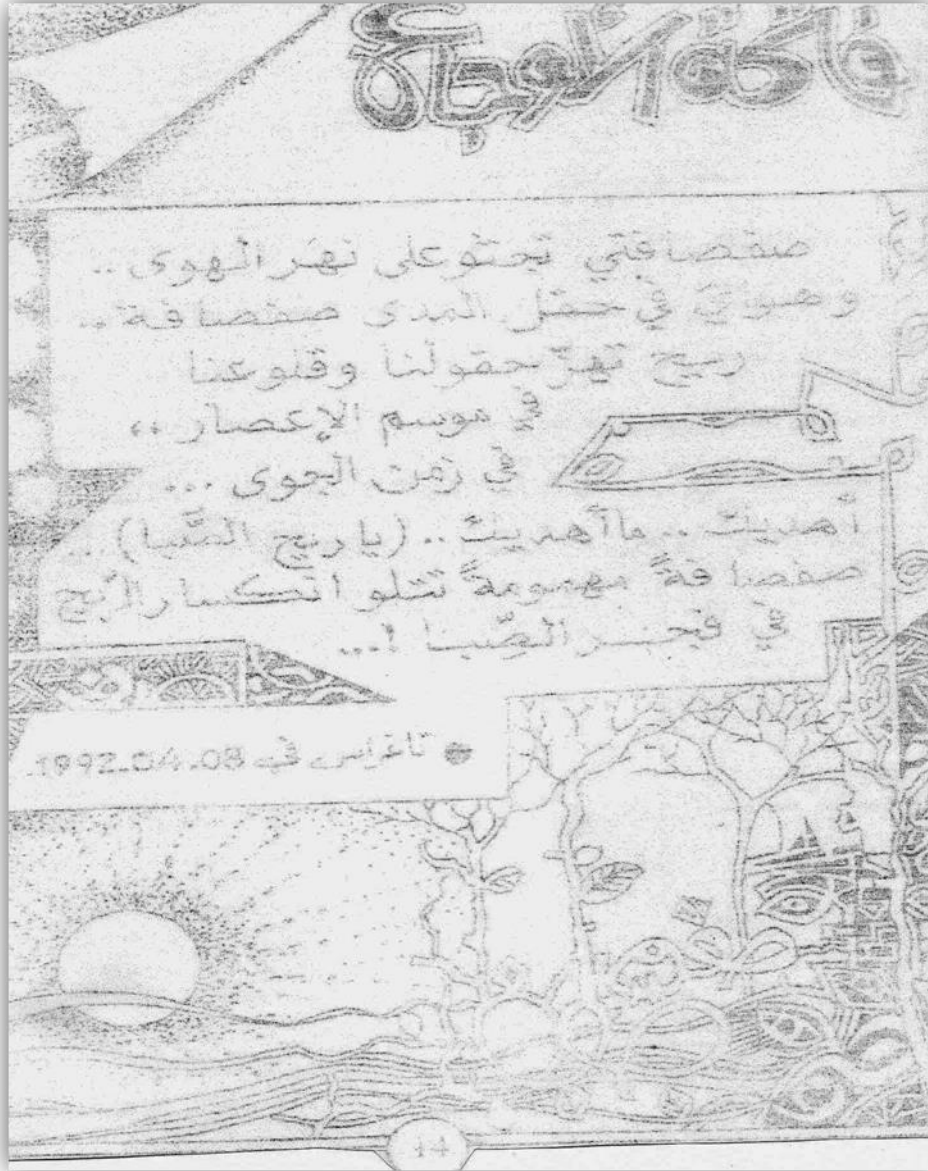 فاكهة الأوجاع
صفصافتي تجثو على نهر الهوى ..
وهواي في حقل المدى صفصافة ..
ريح تهز حقولنا وقلوعنا
في موسم الإعصار ،،
في زمن الجوى ...
أهديك .. ما أهديك .. (يا ريح الصَّبا) ...
صفصافةً مهمومةً تتلو انكسار الريح
في فجر الصِّبا !...
في 1992.04.08
14